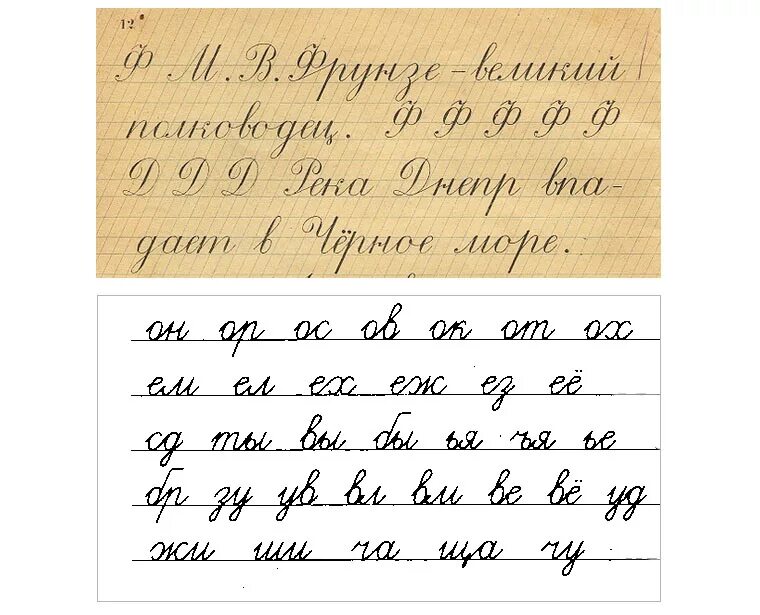 12
Ф М. В. Фрунзе – великий
полководец. Ф Ф Ф Ф Ф
Д Д Д Река Днепр впа-
дает в Чёрное море.
он ор ос ов ок от ох
ем ел ех еж ез её
сд ты вы бы ья ъя ье
бр зу ув вл вм ве вё уд
жи ши ча ща чу